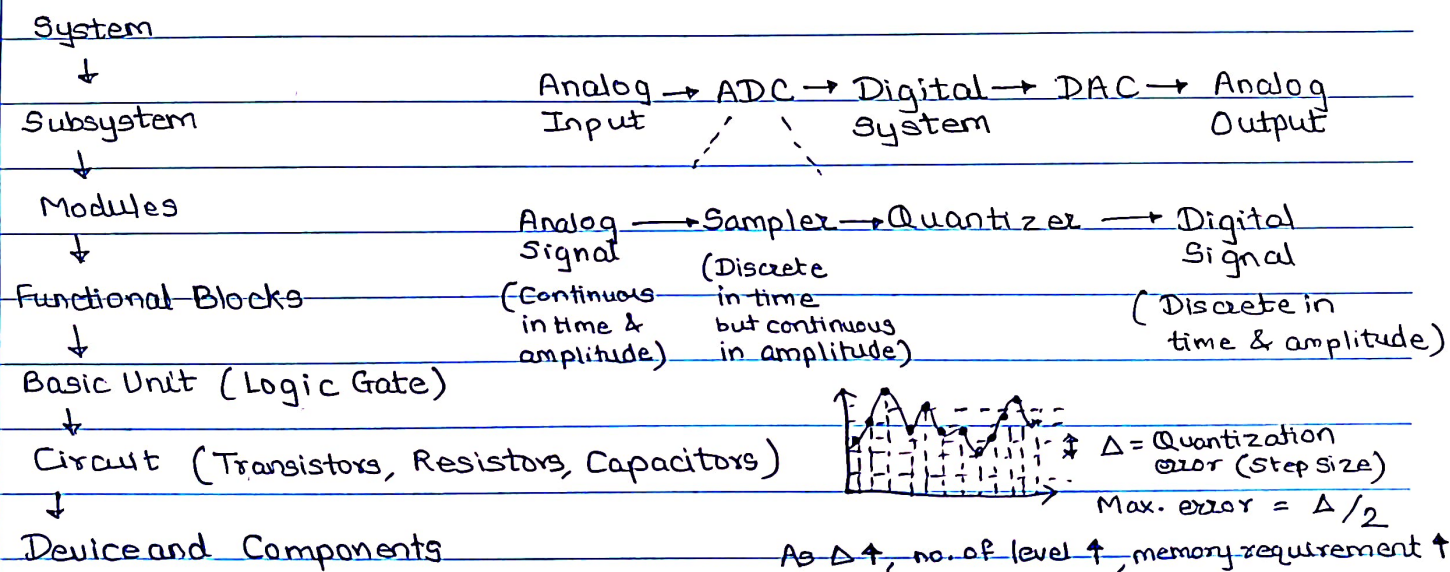 System
↓
Subsystem
↓
Modules
↓
Functional Blocks
↓
Basic Unit (Logic Gate)
↓
Circuit (Transistors, Resistors, Capacitors)
↓
Device and Components
Analog → ADC → Digital → DAC → Analog
Input System Output
Analog → Sampler → Quantizer → Digital
Signal Signal
(Continuous in time & amplitude)
(Discrete in time but continuous in amplitude)
(Discrete in time & amplitude)
Δ = Quantization
error (Step size)
Max. error = Δ/2
As Δ↑, no. of level ↑, memory requirement ↑